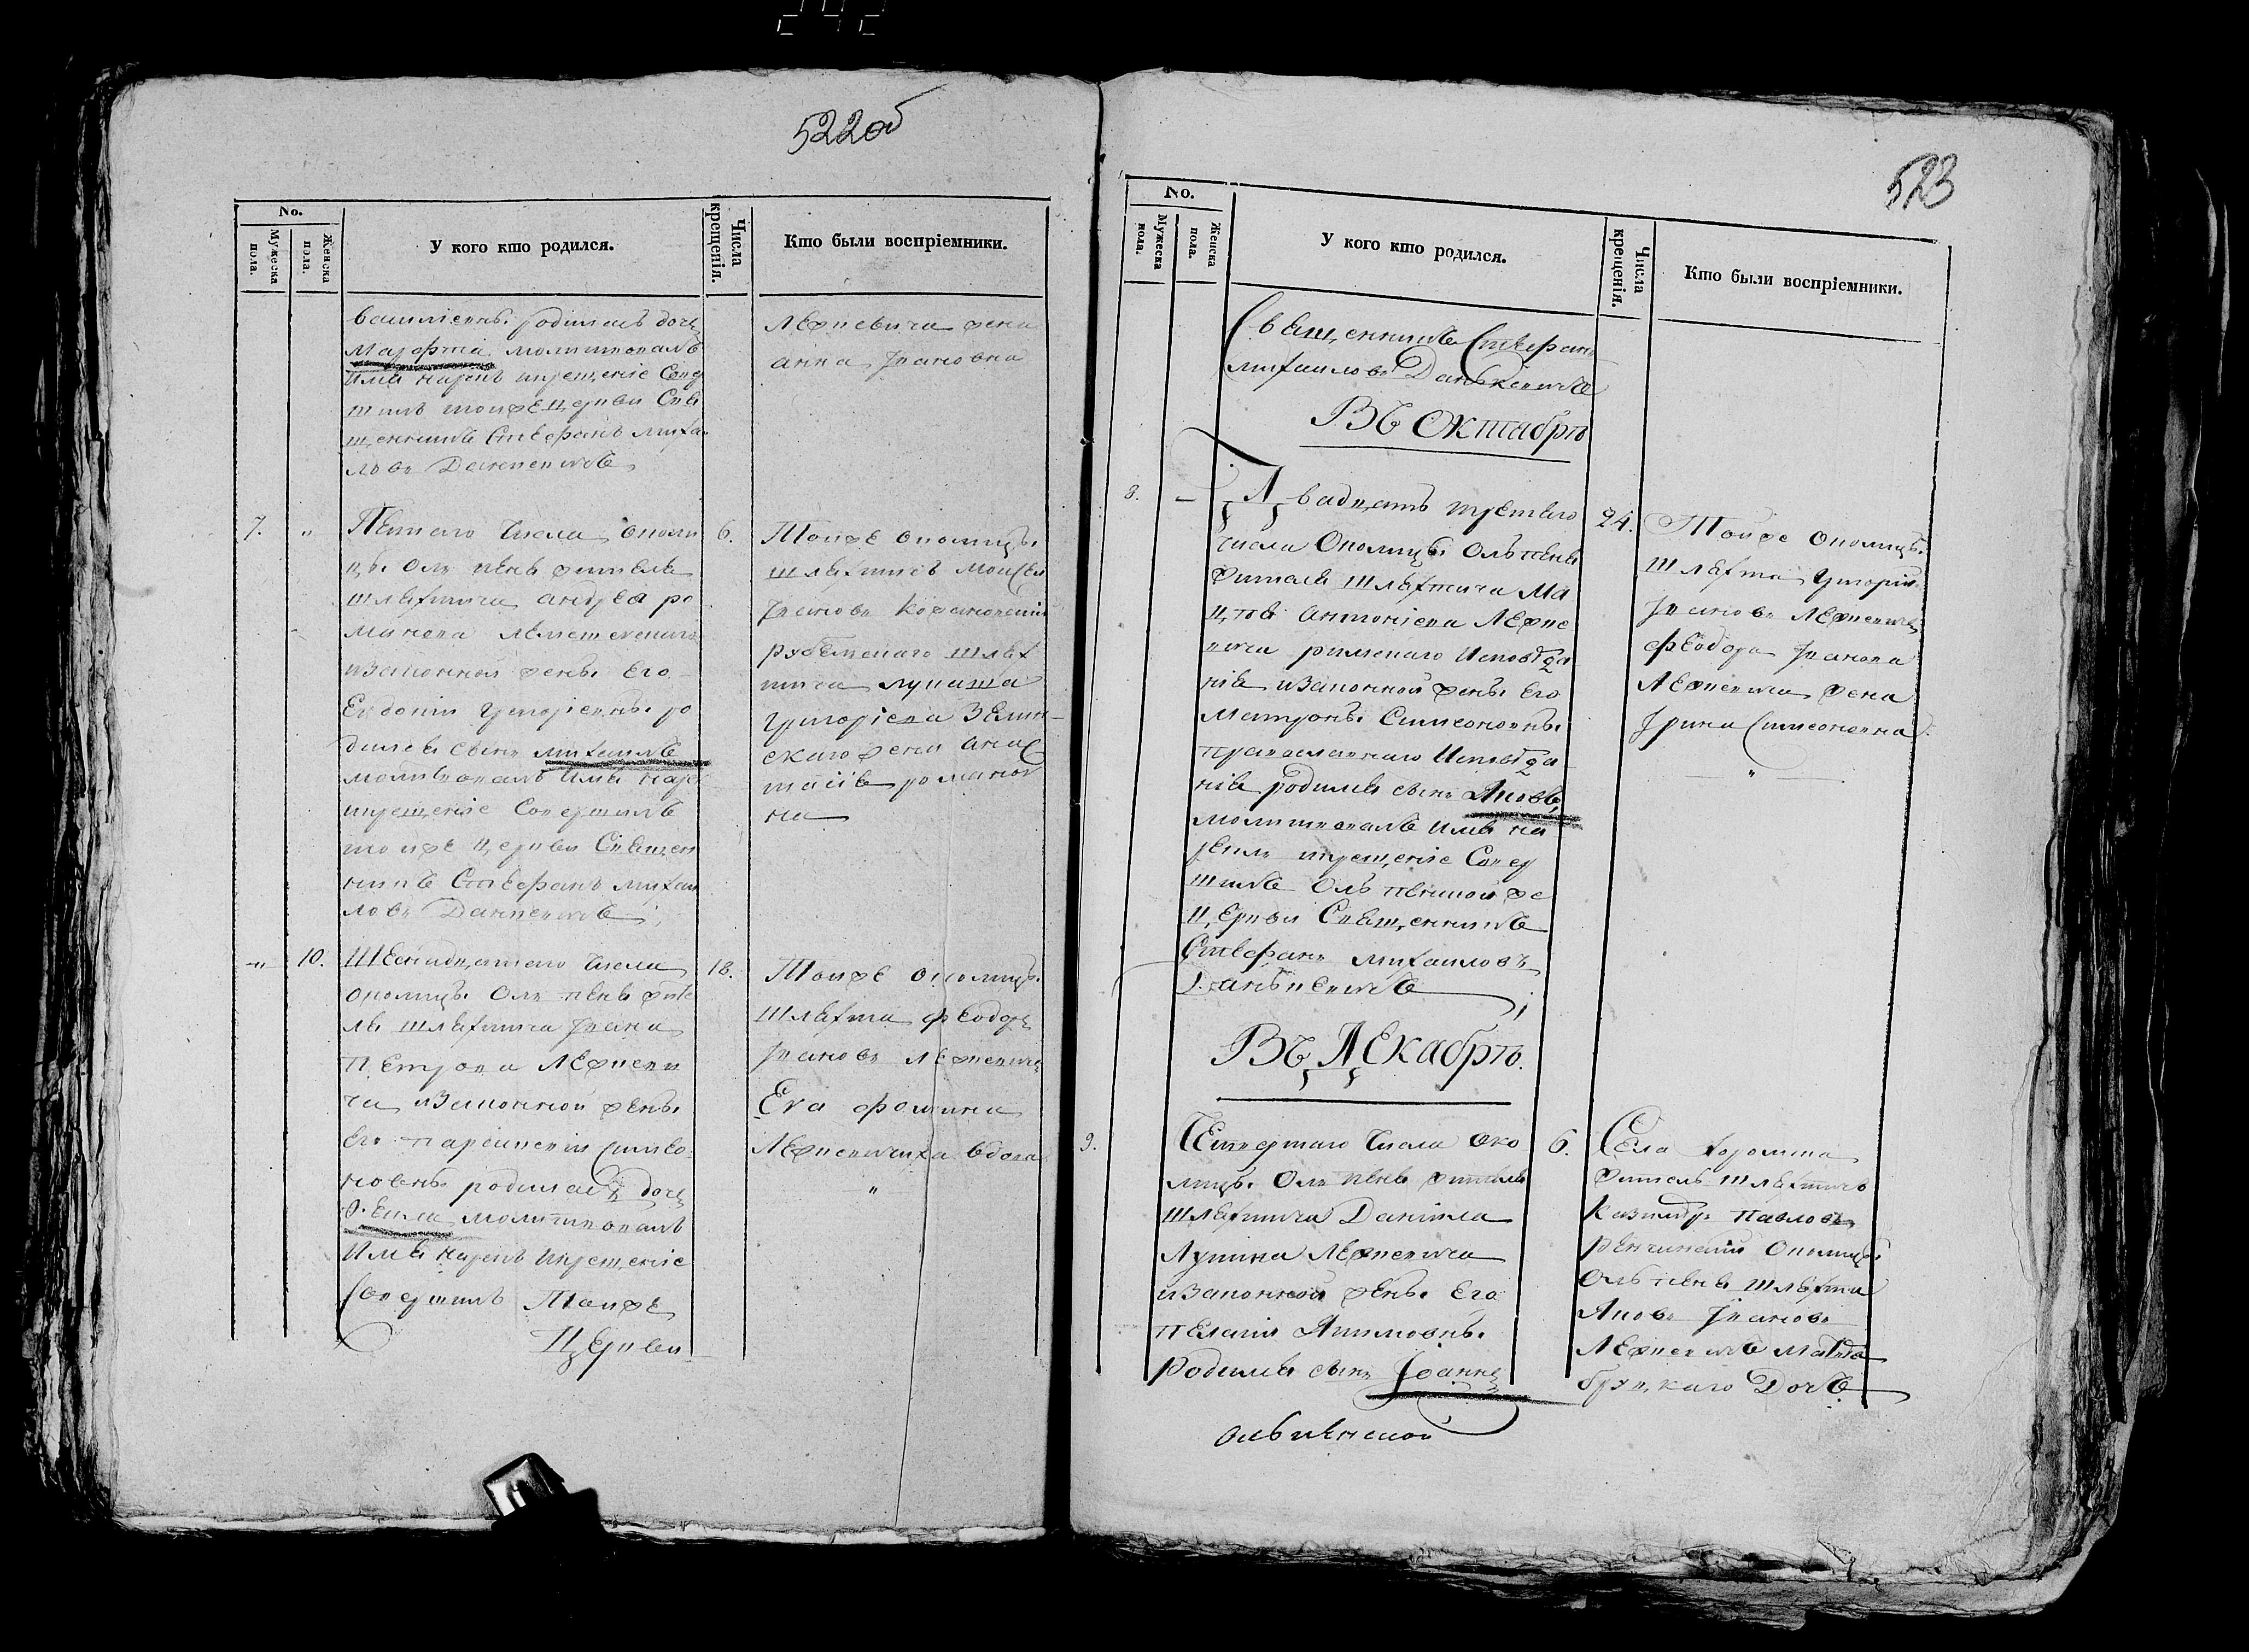 242
522об
No.
Мужеска пола.
Женска пола.
У кого кто родился.
Числа крещенія.
Кто были воспріемники.
родилась дочь
Марфта молитвовалъ
имя нарекъ икрещеніе Совер
шилъ тойже церкви Свя
щенникъ Стефанъ Михаи
ловъ Данкевичъ
Лефкевича жена
анна Іванова
7. " Пятаго Числа околи
цы Олпень жителя
шляхтича андрея ро
манова
изаконной жены Его
Евдокіи Григоріевны ро
дился сынъ михаилъ
молитвовалъ имя наре
икрещеніе Совершилъ
тойже церкви Священ
никъ Стефанъ михаи
ловъ Данкевичъ
6.
Тойже околицы
шляхтичъ Моисей
Івановъ
шлях
тича лукаша
григоріева Зелин
скаго жена анас
тасія романов
на
" 10. Шеснадцатаго Числа
околицы Олпень жите
ля шляхтича Ивана
Петрова Лефкеви
ча изаконной жены
Его Параскевіи Симео
новны родилась дочь
Фекла молитвовалъ
Имя нарекъ Икрещеніе
Совершилъ Тойже
Церкви
18.
Тойже околицы
шляхта Феодоръ
Івановъ Лефкевичъ
Ева фомина
Лефкевичиха вдова
"
523
No.
Мужеска пола.
Женска пола.
У кого кто родился.
Числа крещенія.
Кто были воспріемники.
Священникъ Стефанъ
михаиловъ Данькевичъ
Въ Октабрѣ
8. — Двадцать третяго
числа Околицы Ольпень
жителя шляхтича Ма
цѣя антоніева Лефке
вича римскаго Исповѣда
нія изаконной жены Его
Матроны Симеоновны
православнаго Исповѣда
нія родился сынъ Яковъ,
молитвовалъ имя на
рекъ икрещеніе Совер
шилъ Ольпенской же
церкви Священникъ
Стефанъ михаиловъ
Данькевичъ
24.
Тойже Околицы
шляхта Григорій
Івановъ Лефкевичъ
Феодора Іванова
Лефкевича жена
Ірина Симеоновна.
"
Въ Декабрѣ.
9. Четвертаго Числа Око
лицы Олпень жителя
шляхтича Даніила
Лукина Лефкевича
изаконной жены Его
Пелагіи Якимовны
Родился сынъ Іоаннъ
Ольпенской
6.
Села Хоромска
житель шляхтичъ
Казимиръ Павловъ
Околицы
Ольпень шляхта
Яковъ Івановъ
Лефкевичъ
Дочь